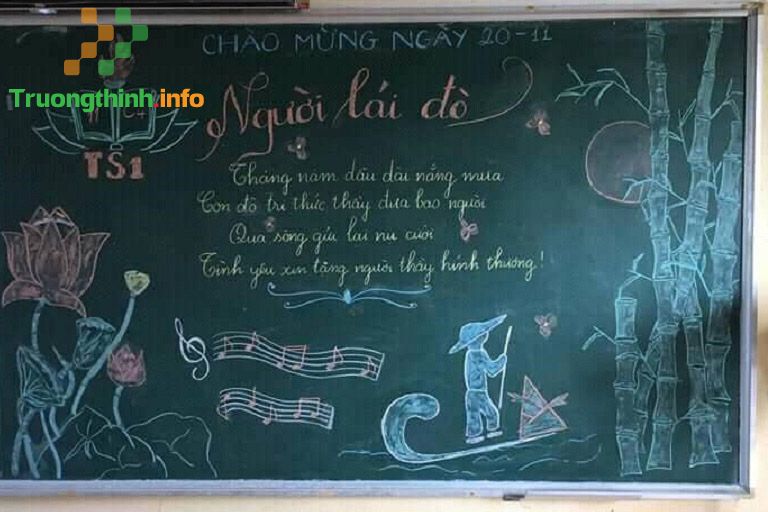 CHÀO MỪNG NGÀY 20-11
Truongthinh.info
Người lái đò
TS1
Tháng năm dầu dãi nắng mưa
Con đò tri thức thầy đưa bao người
Qua sông gửi lại nụ cười
Tình yêu xin tặng người thầy kính thương!